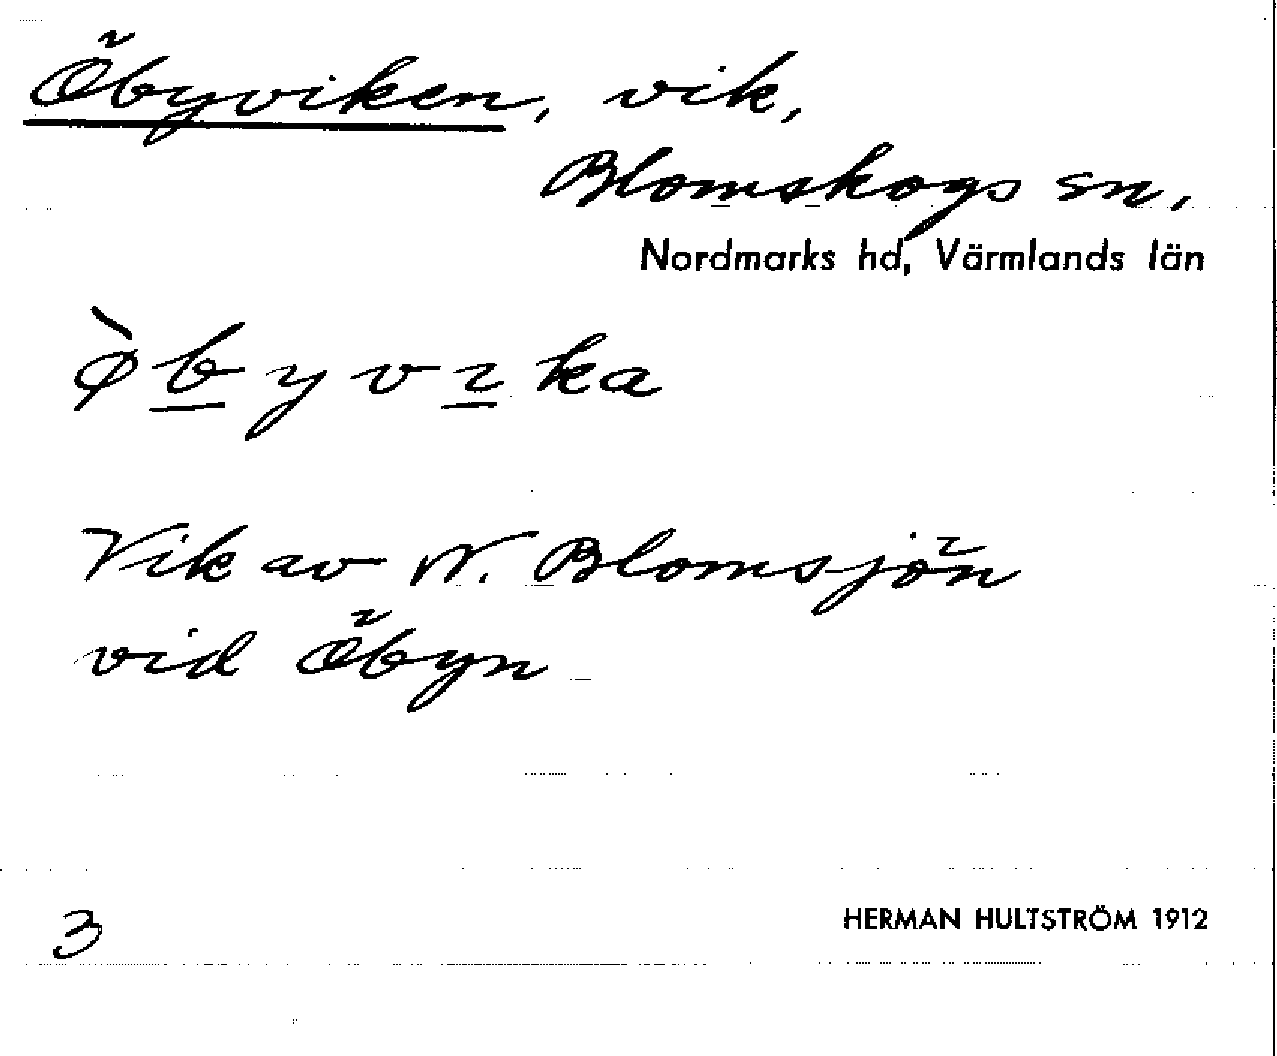 Öbyviken, vik,
Blomskogs sn,
Nordmarks hd, Värmlands län
ø̀b̲yvɩ̲ka
Vik av N. Blomsjön
vid Öbyn
3
HERMAN HULTSTRÖM 1912